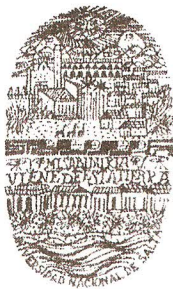 MI SABIDURIA
VIENE DE ESTA TIERRA
UNIVERSIDAD NACIONAL DE